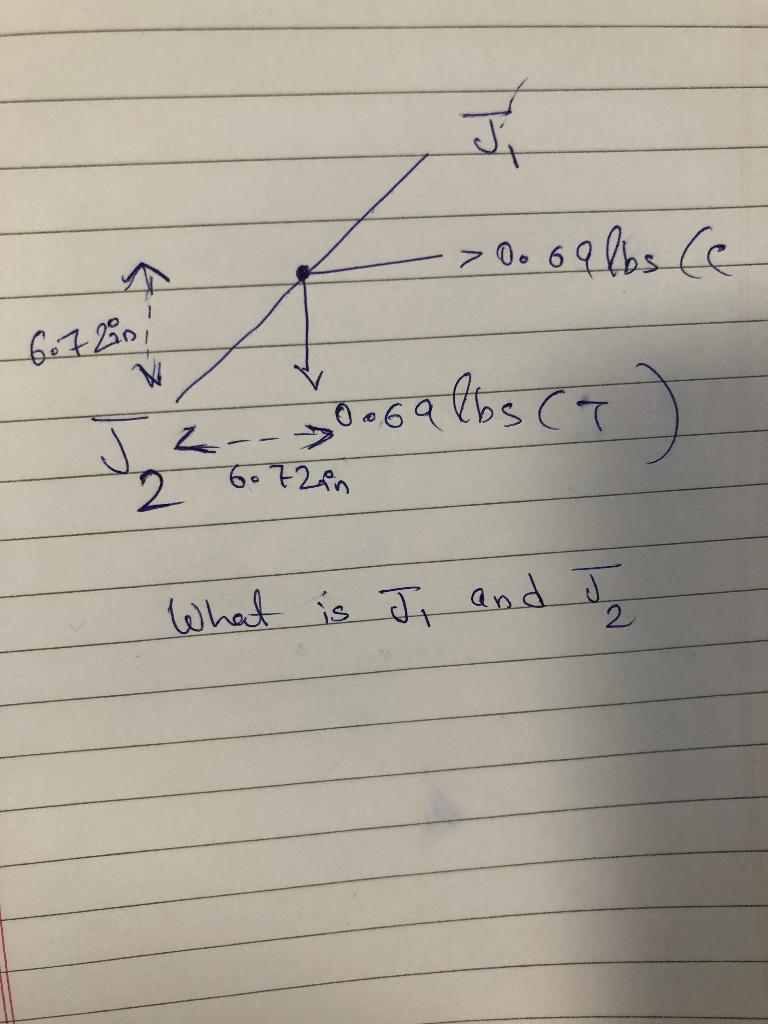 J1
> 0.69 lbs (C
6.72in
0.69 lbs (T)
J2
6.72in
What is J1 and J2